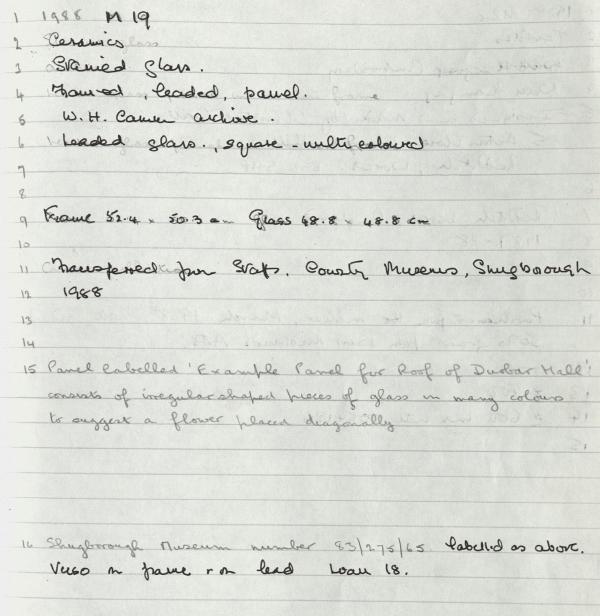 1 1988 M 19
2 Ceramics
3 Stained glass.
4 Framed, leaded, panel.
5 W.H. archive.
6 Leaded glass., square - multi coloured
7
8
9 Frame 52.4 x 50.3 cm Glass 48.8 x 48.8 cm
10
11 Transferred from Staffs. County Museums, Shugborough
12 1988
13
14
15 Panel labelled 'Example Panel for Roof of Durbar Hall'
consists of irregular shaped pieces of glass in many colours
to suggest a flower placed diagonally
16 Shugborough Museum number 83/275/65 labelled as above.
Verso on frame + on lead Loan 18.